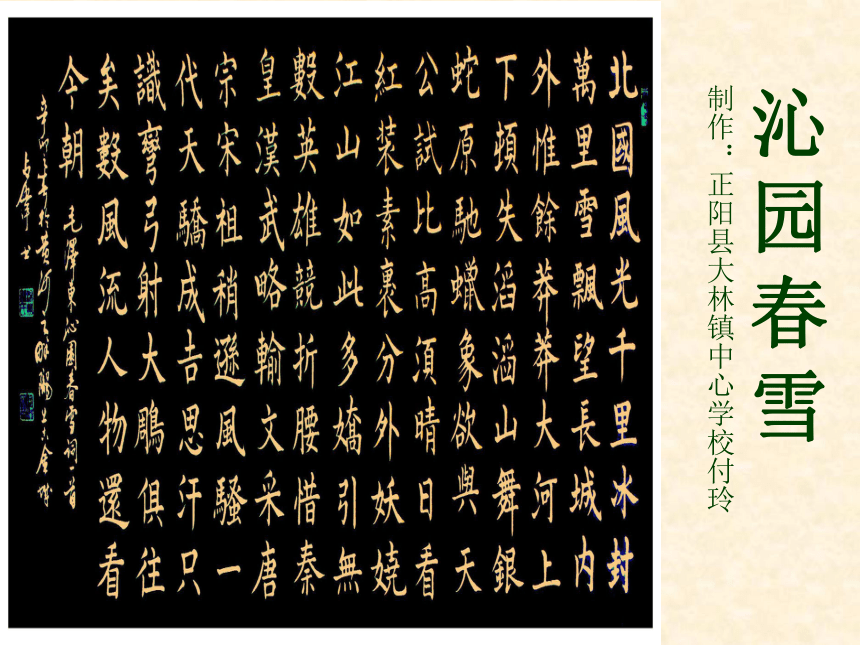 沁园春雪
制作：正阳县大林镇中心学校付玲
北國風光千里冰封
萬里雪飄望長城内
外惟餘莽莽大河上
下頓失滔滔山舞銀
蛇原馳蠟象欲與天
公試比高須晴日看
紅装素裹分外妖嬈
江山如此多嬌引無
數英雄競折腰惜秦
皇漢武略輸文采唐
宗宋祖稍遜風騷一
代天驕成吉思汗只
識彎弓射大鵰俱往
矣數風流人物還看
今朝
毛澤東沁園春雪詞一首
辛卯年於黄河